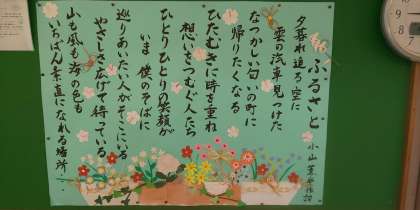 ふるさと
小山薫堂作詞
夕暮れ迫る空に
雲の汽車見つけた
なつかしい匂いの町に
帰りたくなる
ひたむきに時を重ね
想いをつむぐ人たち
ひとりひとりの笑顔が
いま 僕のそばに
巡りあいたい人がそこにいる
やさしさ広げて待っている
山も風も海の色も
いちばん素直になれる場所